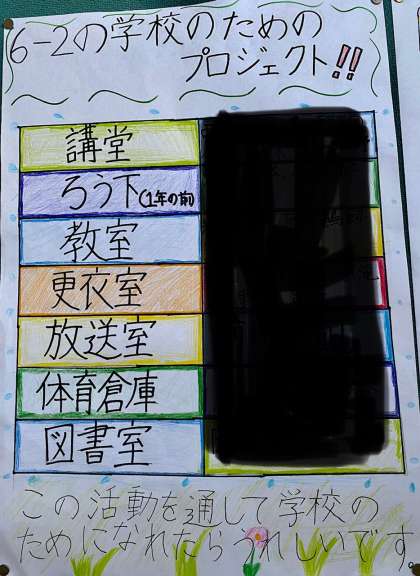 6-2の学校のための
プロジェクト!!
講堂
ろう下(1年の前)
教室
更衣室
放送室
体育倉庫
図書室
この活動を通して学校の
ためになれたらうれしいです。